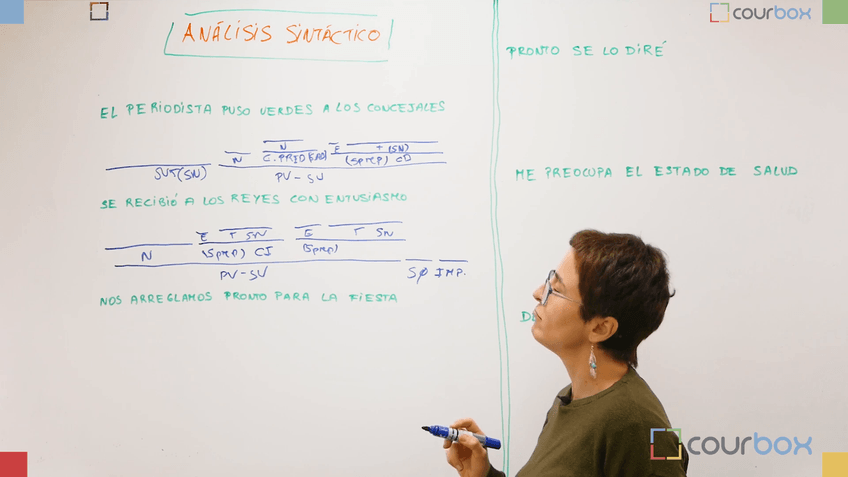 courbox
ANÁLISIS SINTÁCTICO
EL PERIODISTA PUSO VERDES A LOS CONCEJALES
N E T (SN)
SUJ (SN) N C. PRED (SAD) (SPREP) CD
PV - SV
SE RECIBIÓ A LOS REYES CON ENTUSIASMO
E T SN E T SN
N (SPREP) CI (SPREP)
PV - SV SØ IMP.
NOS ARREGLAMOS PRONTO PARA LA FIESTA
PRONTO SE LO DIRÉ
ME PREOCUPA EL ESTADO DE SALUD
courbox